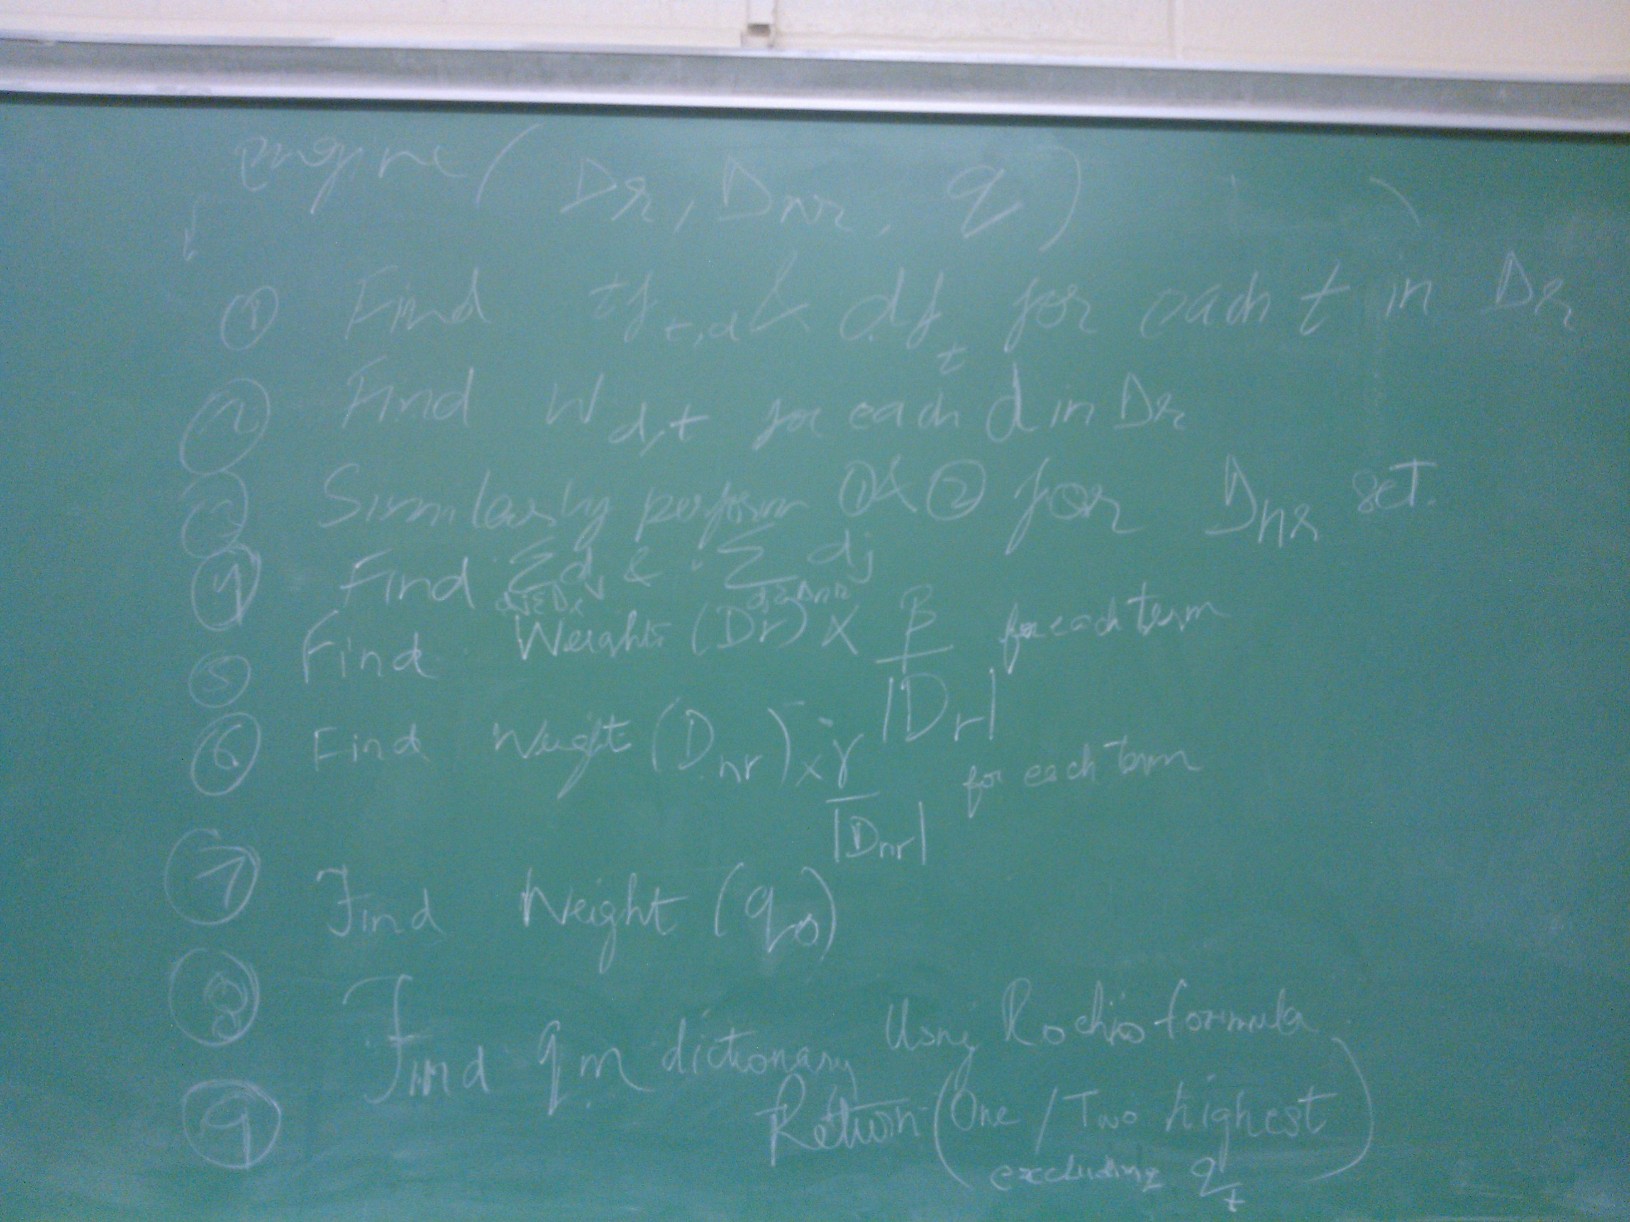 engine(Dr, Dnr, q)
① Find tf t,d & df t for each t in Dr
② Find W d,t for each d in Dr
③ Similarly perform ① & ② for Dnr set.
④ Find ∑ dj∈Dr dj & ∑ dj∈Dnr dj
⑤ Find Weights (Dr) × β / |Dr| for each term
⑥ Find Weight (Dnr) × γ / |Dnr| for each term
⑦ Find Weight (q0)
⑧ Find qm dictionary Using Rochio formula
⑨ Return (One / Two highest
excluding qt)